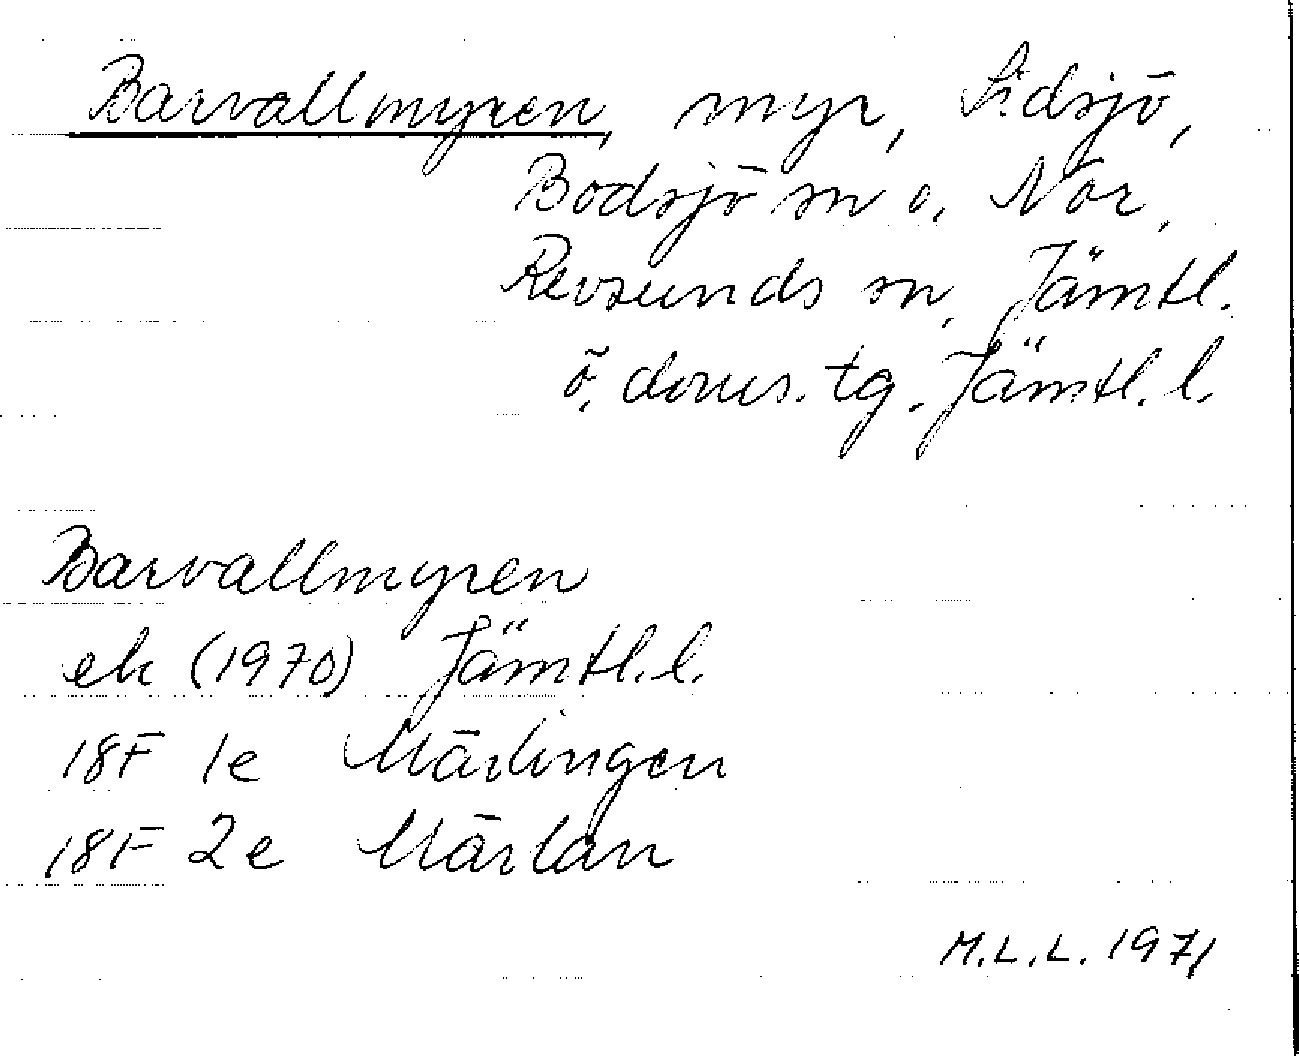 Barvallmyren, myr, Sidsjö,
Bodsjö sn o. Nor,
Revsunds sn, Jämtl.
ö. doms. tg. Jämtl. l.
Barvallmyren
ek (1970) Jämtl. l.
18F 1e Märlingen
18F 2e Märlan
M.L.L. 1971